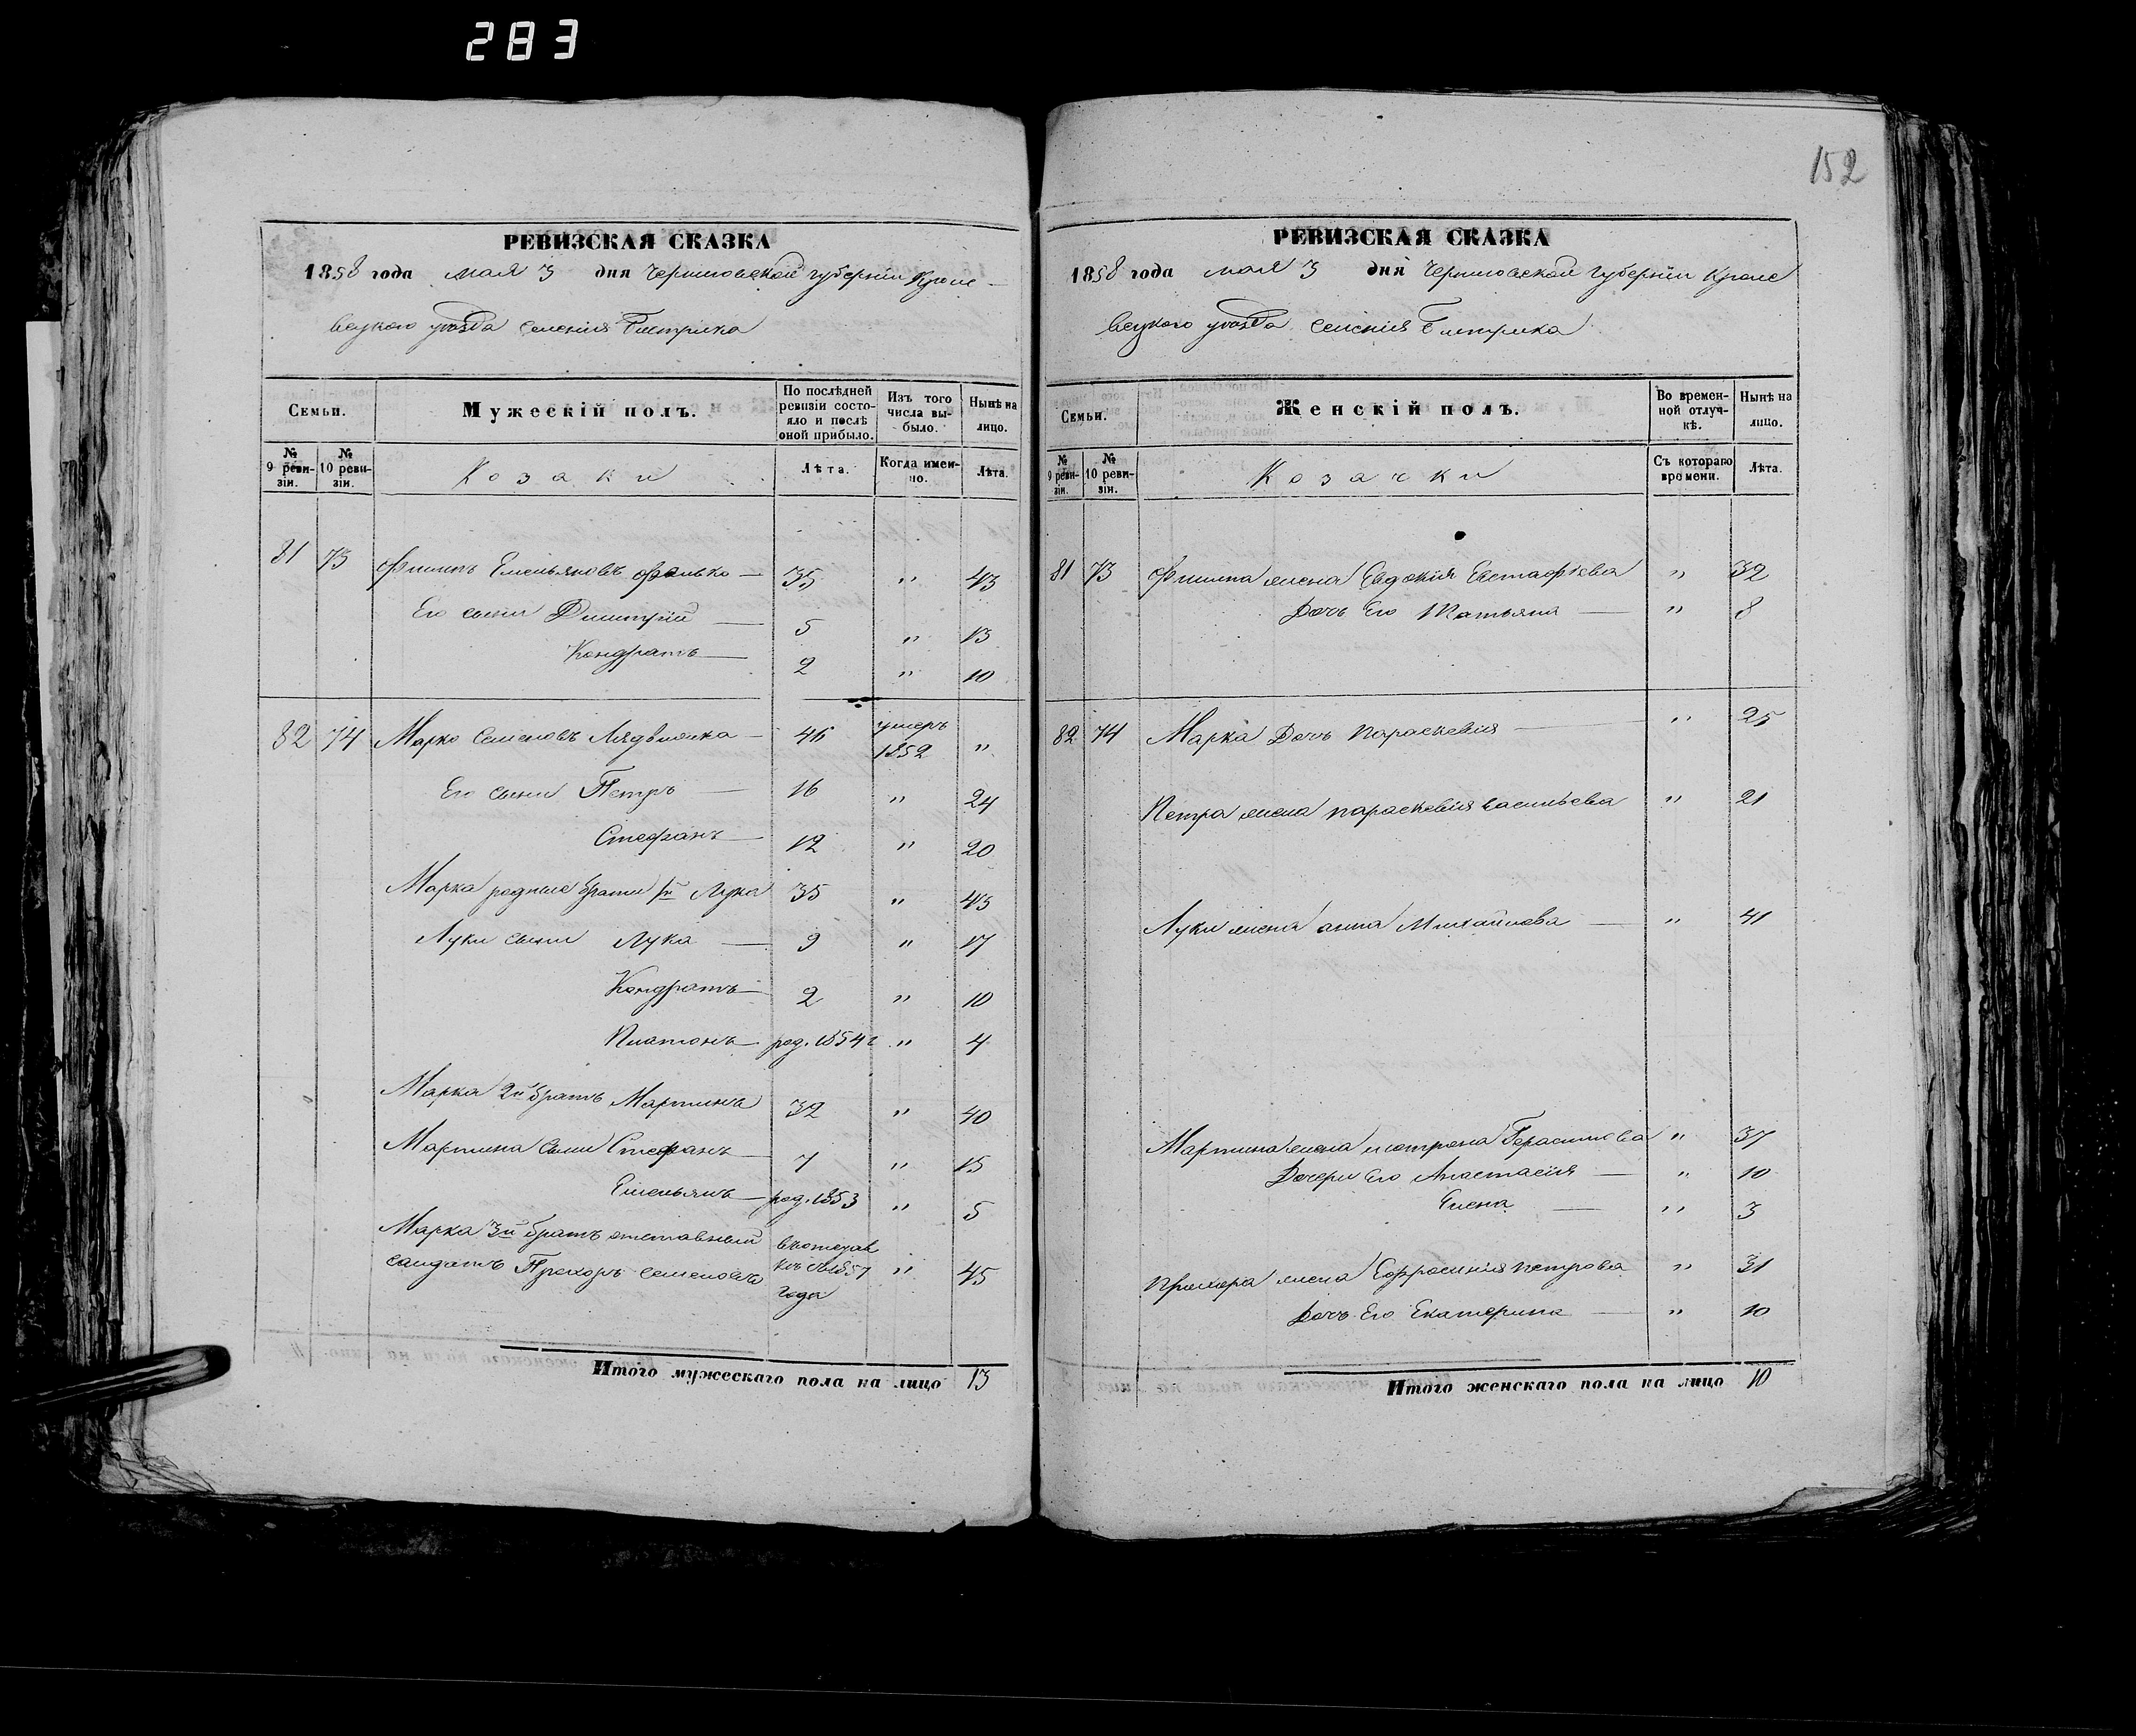 283
152
РЕВИЗСКАЯ СКАЗКА
1858 года мая 3 дня Черниговской губернїи Кроле-
вецкого уезда селенія Быстрика
Семьи.
Мужескій полъ.
По послѣдней ревизіи состояло и послѣ оной прибыло.
Изъ того числа выбыло.
Нынѣ на лицо.
№ 9 ревизіи.
№ 10 ревизіи.
Козаки
Лѣта.
Когда именно.
Лѣта.
81 73 Филипъ Емельяновъ — 35 " 43
Его сыни Димитрій — 5 " 13
Кондратъ — 2 " 10
82 74 Марко Семеновъ — 46 умеръ 1852 "
Его сыни Петръ — 16 " 24
Стефанъ — 12 " 20
Марка родные братья 1й Лука 35 " 43
Луки сыни Лука — 9 " 17
Кондратъ — 2 " 10
Платонъ — род. 1854 г " 4
Марка 2й братъ Мартинъ 32 " 40
Мартина сыни Стефанъ — 7 " 15
Емельянъ — род. 1853 " 5
Марка 3й братъ отставный
солдатъ Прохоръ Семеновъ 1857 года " 45
Итого мужескаго пола на лицо 13
РЕВИЗСКАЯ СКАЗКА
1858 года мая 3 дня Черниговской губерніи Кроле
вецкого уезда селенія Быстрика
Семьи.
Женскій полъ.
Во временной отлучкѣ.
Нынѣ на лицо.
№ 9 ревизіи.
№ 10 ревизіи.
Козачки
Съ котораго времени.
Лѣта.
81 73 Филипа жена Евдокія Евстафіева " 32
Дочь Его Татьяна — " 8
82 74 Марка Дочь Параскевія — " 25
Петра жена Параскевія Васильева " 21
Луки жена Анна Михайлова — " 41
Мартина жена Мотрона Герасимова " 37
Дочери Его Анастасія — " 10
Елена — " 3
Прохора жена Ефросинія Петрова " 31
Дочь Его Екатерина — " 10
Итого женскаго пола на лицо 10